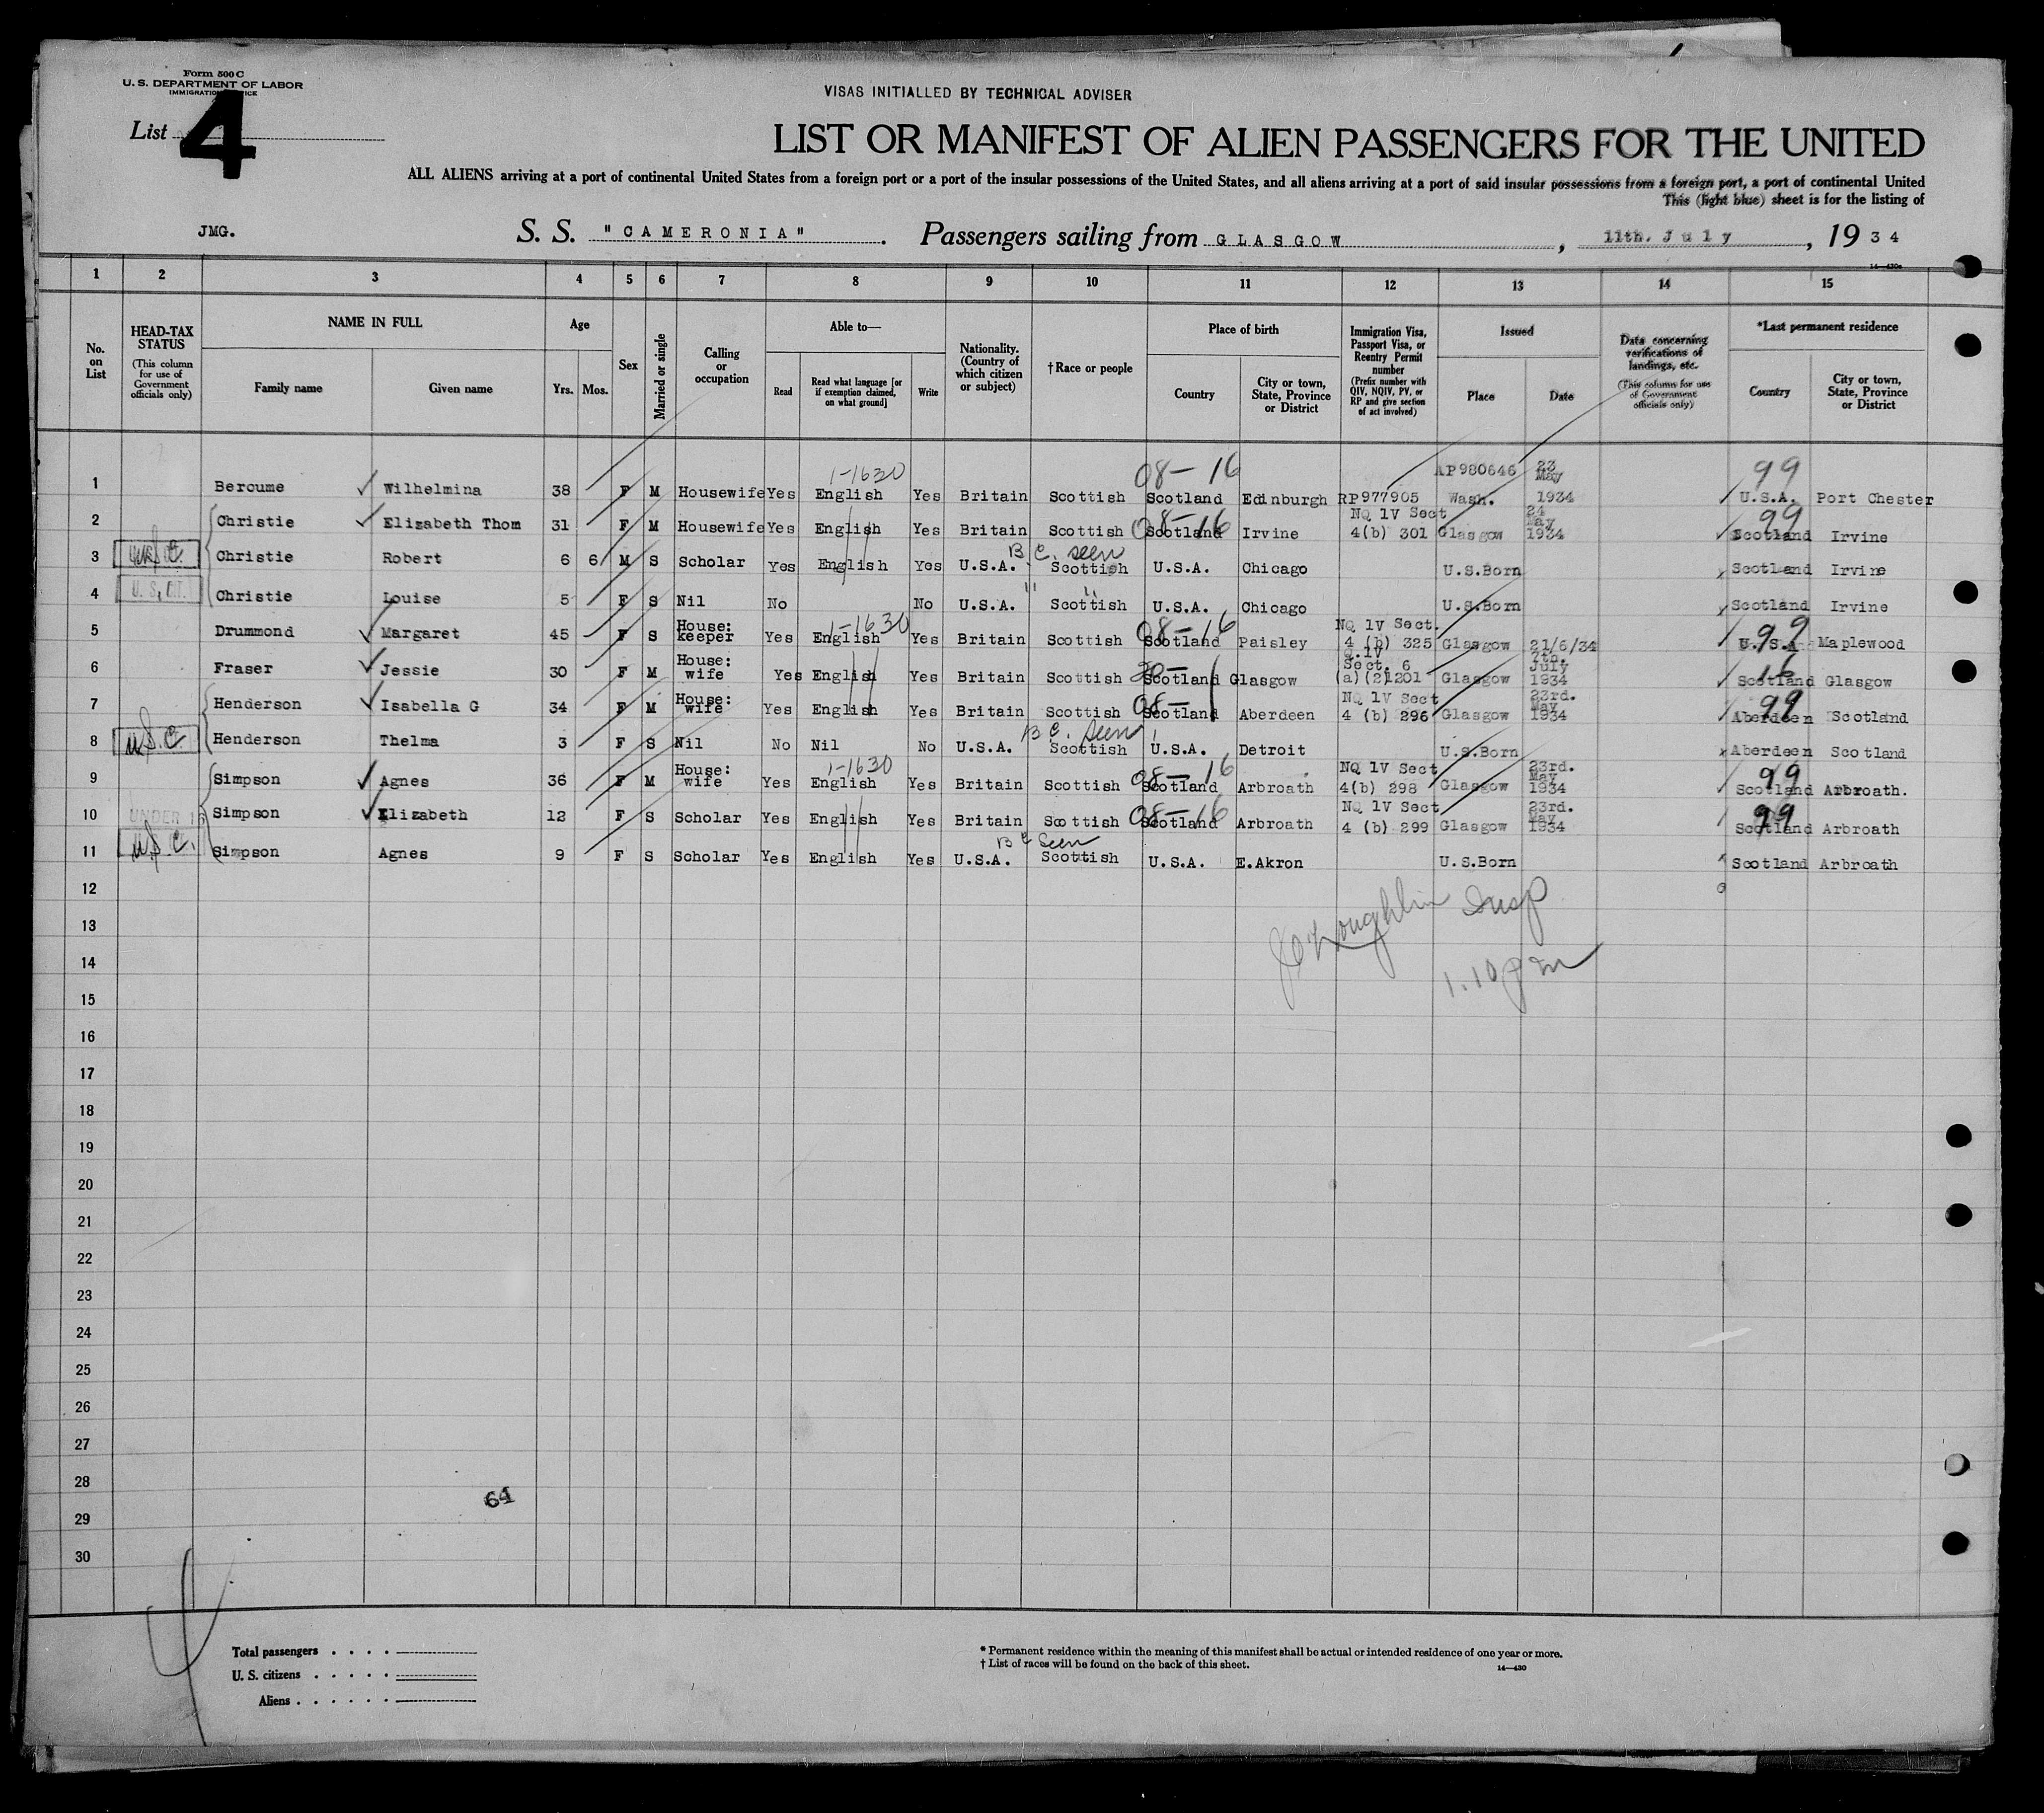 Form 500 C
U. S. DEPARTMENT OF LABOR
IMMIGRATION SERVICE
List 4
VISAS INITIALLED BY TECHNICAL ADVISER
LIST OR MANIFEST OF ALIEN PASSENGERS FOR THE UNITED
ALL ALIENS arriving at a port of continental United States from a foreign port or a port of the insular possessions of the United States, and all aliens arriving at a port of said insular possessions from a foreign port, a port of continental United
This (light blue) sheet is for the listing of
JMG. S. S. "CAMERONIA". Passengers sailing from GLASGOW, 11th. July, 1934
14—430a
1 2 3 4 5 6 7 8 9 10 11 12 13 14 15
No. on List
HEAD-TAX STATUS (This column for use of Government officials only)
NAME IN FULL Family name Given name
Age Yrs. Mos.
Sex
Married or single
Calling or occupation
Able to— Read Read what language [or if exemption claimed, on what ground] Write
Nationality. (Country of which citizen or subject)
†Race or people
Place of birth Country City or town, State, Province or District
Immigration Visa, Passport Visa, or Reentry Permit number (Prefix number with QIV, NQIV, PV, or RP and give section of act involved)
Issued Place Date
Data concerning verifications of landings, etc. (This column for use of Government officials only)
*Last permanent residence Country City or town, State, Province or District
1-1630 08-16 AP980646 23 May 99
1 Bercume Wilhelmina 38 F M Housewife Yes English Yes Britain Scottish Scotland Edinburgh RP977905 Wash. 1934 U.S.A. Port Chester
2 Christie Elizabeth Thom 31 F M Housewife Yes English Yes Britain Scottish 08-16 Scotland Irvine NQ 1V Sect 4(b) 301 Glasgow 24 May 1934 99 Scotland Irvine
3 U.S.C. Christie Robert 6 6 M S Scholar Yes English Yes U.S.A. B C. seen Scottish U.S.A. Chicago U.S.Born Scotland Irvine
4 U.S. CIT. Christie Louise 5 F S Nil No No U.S.A. " " Scottish U.S.A. Chicago U.S.Born Scotland Irvine
5 Drummond Margaret 45 F S House: keeper Yes 1-1630 English Yes Britain Scottish 08-16 Scotland Paisley NQ 1V Sect. 4 (b) 325 Glasgow 21/6/34 99 U.S.A. Maplewood
6 Fraser Jessie 30 F M House: wife Yes English Yes Britain Scottish Scotland Glasgow Q.1V Sect. 6 (a)(2)1201 Glasgow 7th. July 1934 16 Scotland Glasgow
7 Henderson Isabella G 34 F M House: wife Yes English Yes Britain Scottish 08- Scotland Aberdeen NQ 1V Sect 4 (b) 296 Glasgow 23rd. May 1934 99 Aberdeen Scotland
8 U.S.C. Henderson Thelma 3 F S Nil No Nil No U.S.A. B C. Seen Scottish U.S.A. Detroit U.S.Born Aberdeen Scotland
9 Simpson Agnes 36 F M House: wife Yes 1-1630 English Yes Britain Scottish 08-16 Scotland Arbroath NQ 1V Sect 4(b) 298 Glasgow 23rd. May 1934 99 Scotland Arbroath.
10 UNDER 16 Simpson Elizabeth 12 F S Scholar Yes English Yes Britain Scottish 08-16 Scotland Arbroath NQ 1V Sect 4 (b) 299 Glasgow 23rd. May 1934 99 Scotland Arbroath
11 U.S.C. Simpson Agnes 9 F S Scholar Yes English Yes U.S.A. B C Seen Scottish U.S.A. E.Akron U.S.Born Scotland Arbroath
12
13 Insp
14
15 1.10 pm
16
17
18
19
20
21
22
23
24
25
26
27
28
64
29
30
Total passengers . . . .
U. S. citizens . . . . .
Aliens . . . . . .
* Permanent residence within the meaning of this manifest shall be actual or intended residence of one year or more.
† List of races will be found on the back of this sheet.
14—430